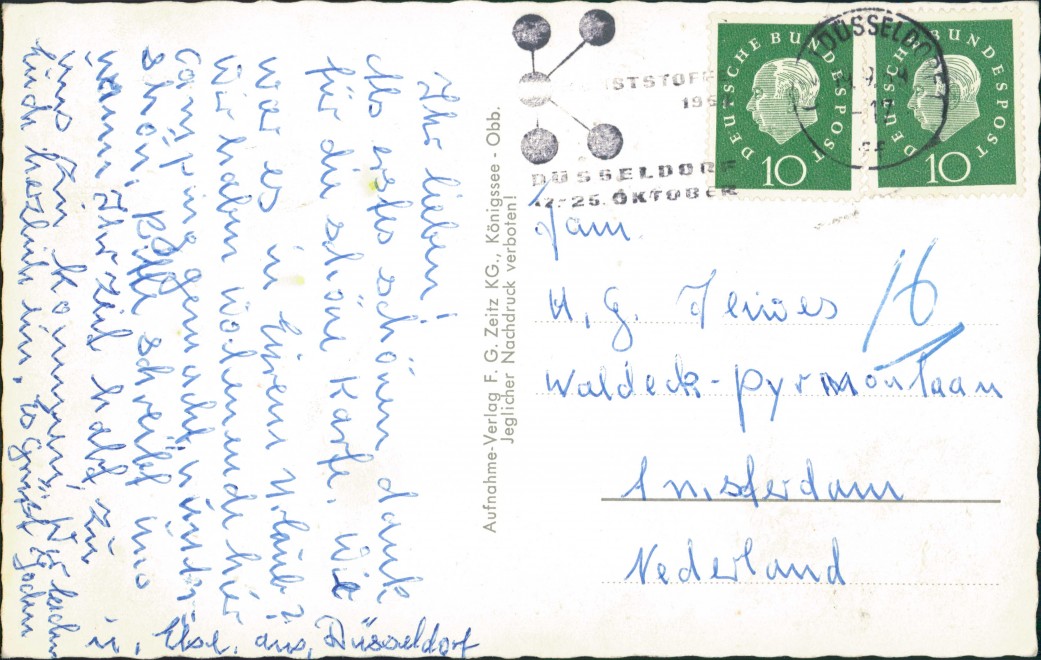 Ihr lieben!
Als erstes schönen dank
für die schöne Karte. Wie
war es in Eurem Urlaub?
Wir haben Wochenende hier
Camping gemacht, war
schön. Bitte schreibt uns
wann Ihr Zeit habt, zu
uns zu kommen. Wir laden
Euch herzlich ein. Es grüßt Jochen
u. Else, aus, Düsseldorf
Aufnahme-Verlag F. G. Zeitz KG., Königssee - Obb.
Jeglicher Nachdruck verboten!
KUNSTSTOFFE
1959
DÜSSELDORF
17.-25. OKTOBER
DÜSSELDORF
DEUTSCHE BUNDESPOST
10
DEUTSCHE BUNDESPOST
10
Fam.
H. G.
Waldeck-Pyrmontlaan
16
Amsterdam
Nederland